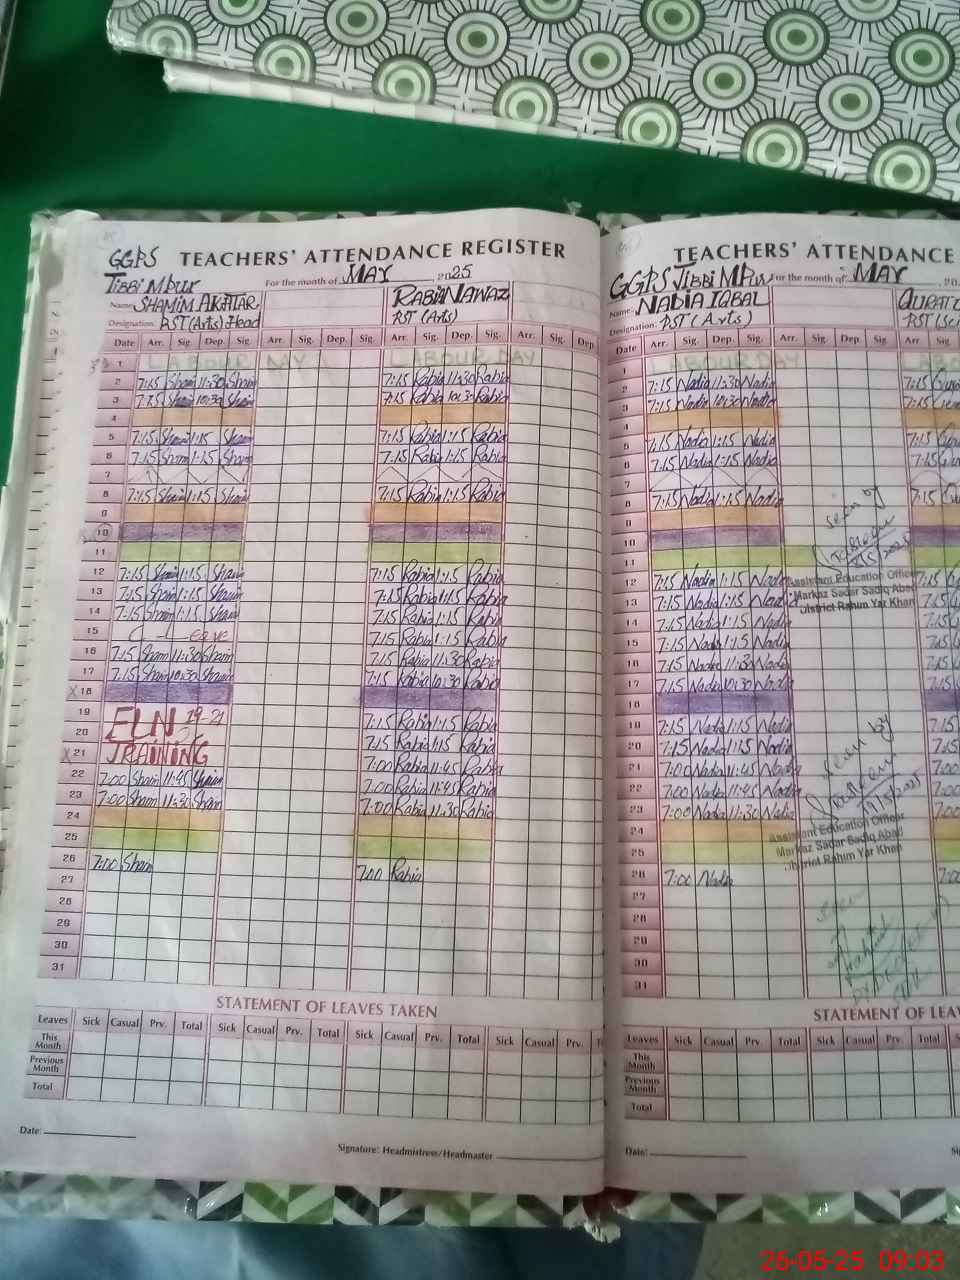 GGPS TEACHERS' ATTENDANCE REGISTER
Tibbi M Pur For the month of MAY 2025
Name: SHAMIM AKHTAR RABIA NAWAZ
Designation: PST (Arts) Head PST (Arts)
Date Arr. Sig. Dep. Sig. Arr. Sig. Dep. Sig. Arr. Sig. Dep. Sig. Arr. Sig. Dep.
1 LABOUR DAY LABOUR DAY
2 7:15 Sham 11:30 Sham 7:15 Rabia 11:30 Rabia
3 7:15 Sham 10:30 Sham 7:15 Rabia 10:30 Rabia
4
5 7:15 Sham 1:15 Sham 7:15 Rabia 1:15 Rabia
6 7:15 Sham 1:15 Sham 7:15 Rabia 1:15 Rabia
7
8 7:15 Sham 1:15 Sham 7:15 Rabia 1:15 Rabia
9
10
11
12 7:15 Sham 1:15 Sham 7:15 Rabia 1:15 Rabia
13 7:15 Sham 1:15 Sham 7:15 Rabia 1:15 Rabia
14 7:15 Sham 1:15 Sham 7:15 Rabia 1:15 Rabia
15 C-Leave 7:15 Rabia 1:15 Rabia
16 7:15 Sham 11:30 Sham 7:15 Rabia 11:30 Rabia
17 7:15 Sham 10:30 Sham 7:15 Rabia 10:30 Rabia
18
19 FLN 19-21 7:15 Rabia 1:15 Rabia
20 7:15 Rabia 1:15 Rabia
21 TRAINING 7:00 Rabia 11:45 Rabia
22 7:00 Sham 11:45 Sham 7:00 Rabia 11:45 Rabia
23 7:00 Sham 11:30 Sham 7:00 Rabia 11:30 Rabia
24
25
26 7:00 Sham 7:00 Rabia
27
28
29
30
31
STATEMENT OF LEAVES TAKEN
Leaves Sick Casual Prv. Total Sick Casual Prv. Total Sick Casual Prv. Total Sick Casual Prv.
This Month
Previous Month
Total
Date:
Signature: Headmistress/Headmaster
TEACHERS' ATTENDANCE
GGPS Tibbi M Pur For the month of MAY 20
Name: NADIA IQBAL
Designation: PST (Arts) PST (Sci
Date Arr. Sig. Dep. Sig. Arr. Sig. Dep. Sig. Arr.
1 LABOUR DAY
2 7:15 Nadia 11:30 Nadia 7:15
3 7:15 Nadia 10:30 Nadia 7:15
4
5 7:15 Nadia 1:15 Nadia 7:15
6 7:15 Nadia 1:15 Nadia 7:15
7
8 7:15 Nadia 1:15 Nadia 7:15
9
10
11
12 7:15 Nadia 1:15 Nadia
13 7:15 Nadia 1:15 Nadia
14 7:15 Nadia 1:15 Nadia
15 7:15 Nadia 1:15 Nadia
16 7:15 Nadia 11:30 Nadia
17 7:15 Nadia 10:30 Nadia
18
19 7:15 Nadia 1:15 Nadia
20 7:15 Nadia 1:15 Nadia
21 7:00 Nadia 11:45 Nadia
22 7:00 Nadia 11:45 Nadia
23 7:00 Nadia 11:30 Nadia
24
25
26 7:00 Nadia 7:00
27
28
29
30
31
Seen by
Assistant Education Officer
Markaz Sadar Sadiq Abad
District Rahim Yar Khan
Seen by
Assistant Education Officer
Markaz Sadar Sadiq Abad
District Rahim Yar Khan
STATEMENT OF LEA
Leaves Sick Casual Prv. Total Sick Casual Prv. Total
This Month
Previous Month
Total
Date:
26-05-25 09:03